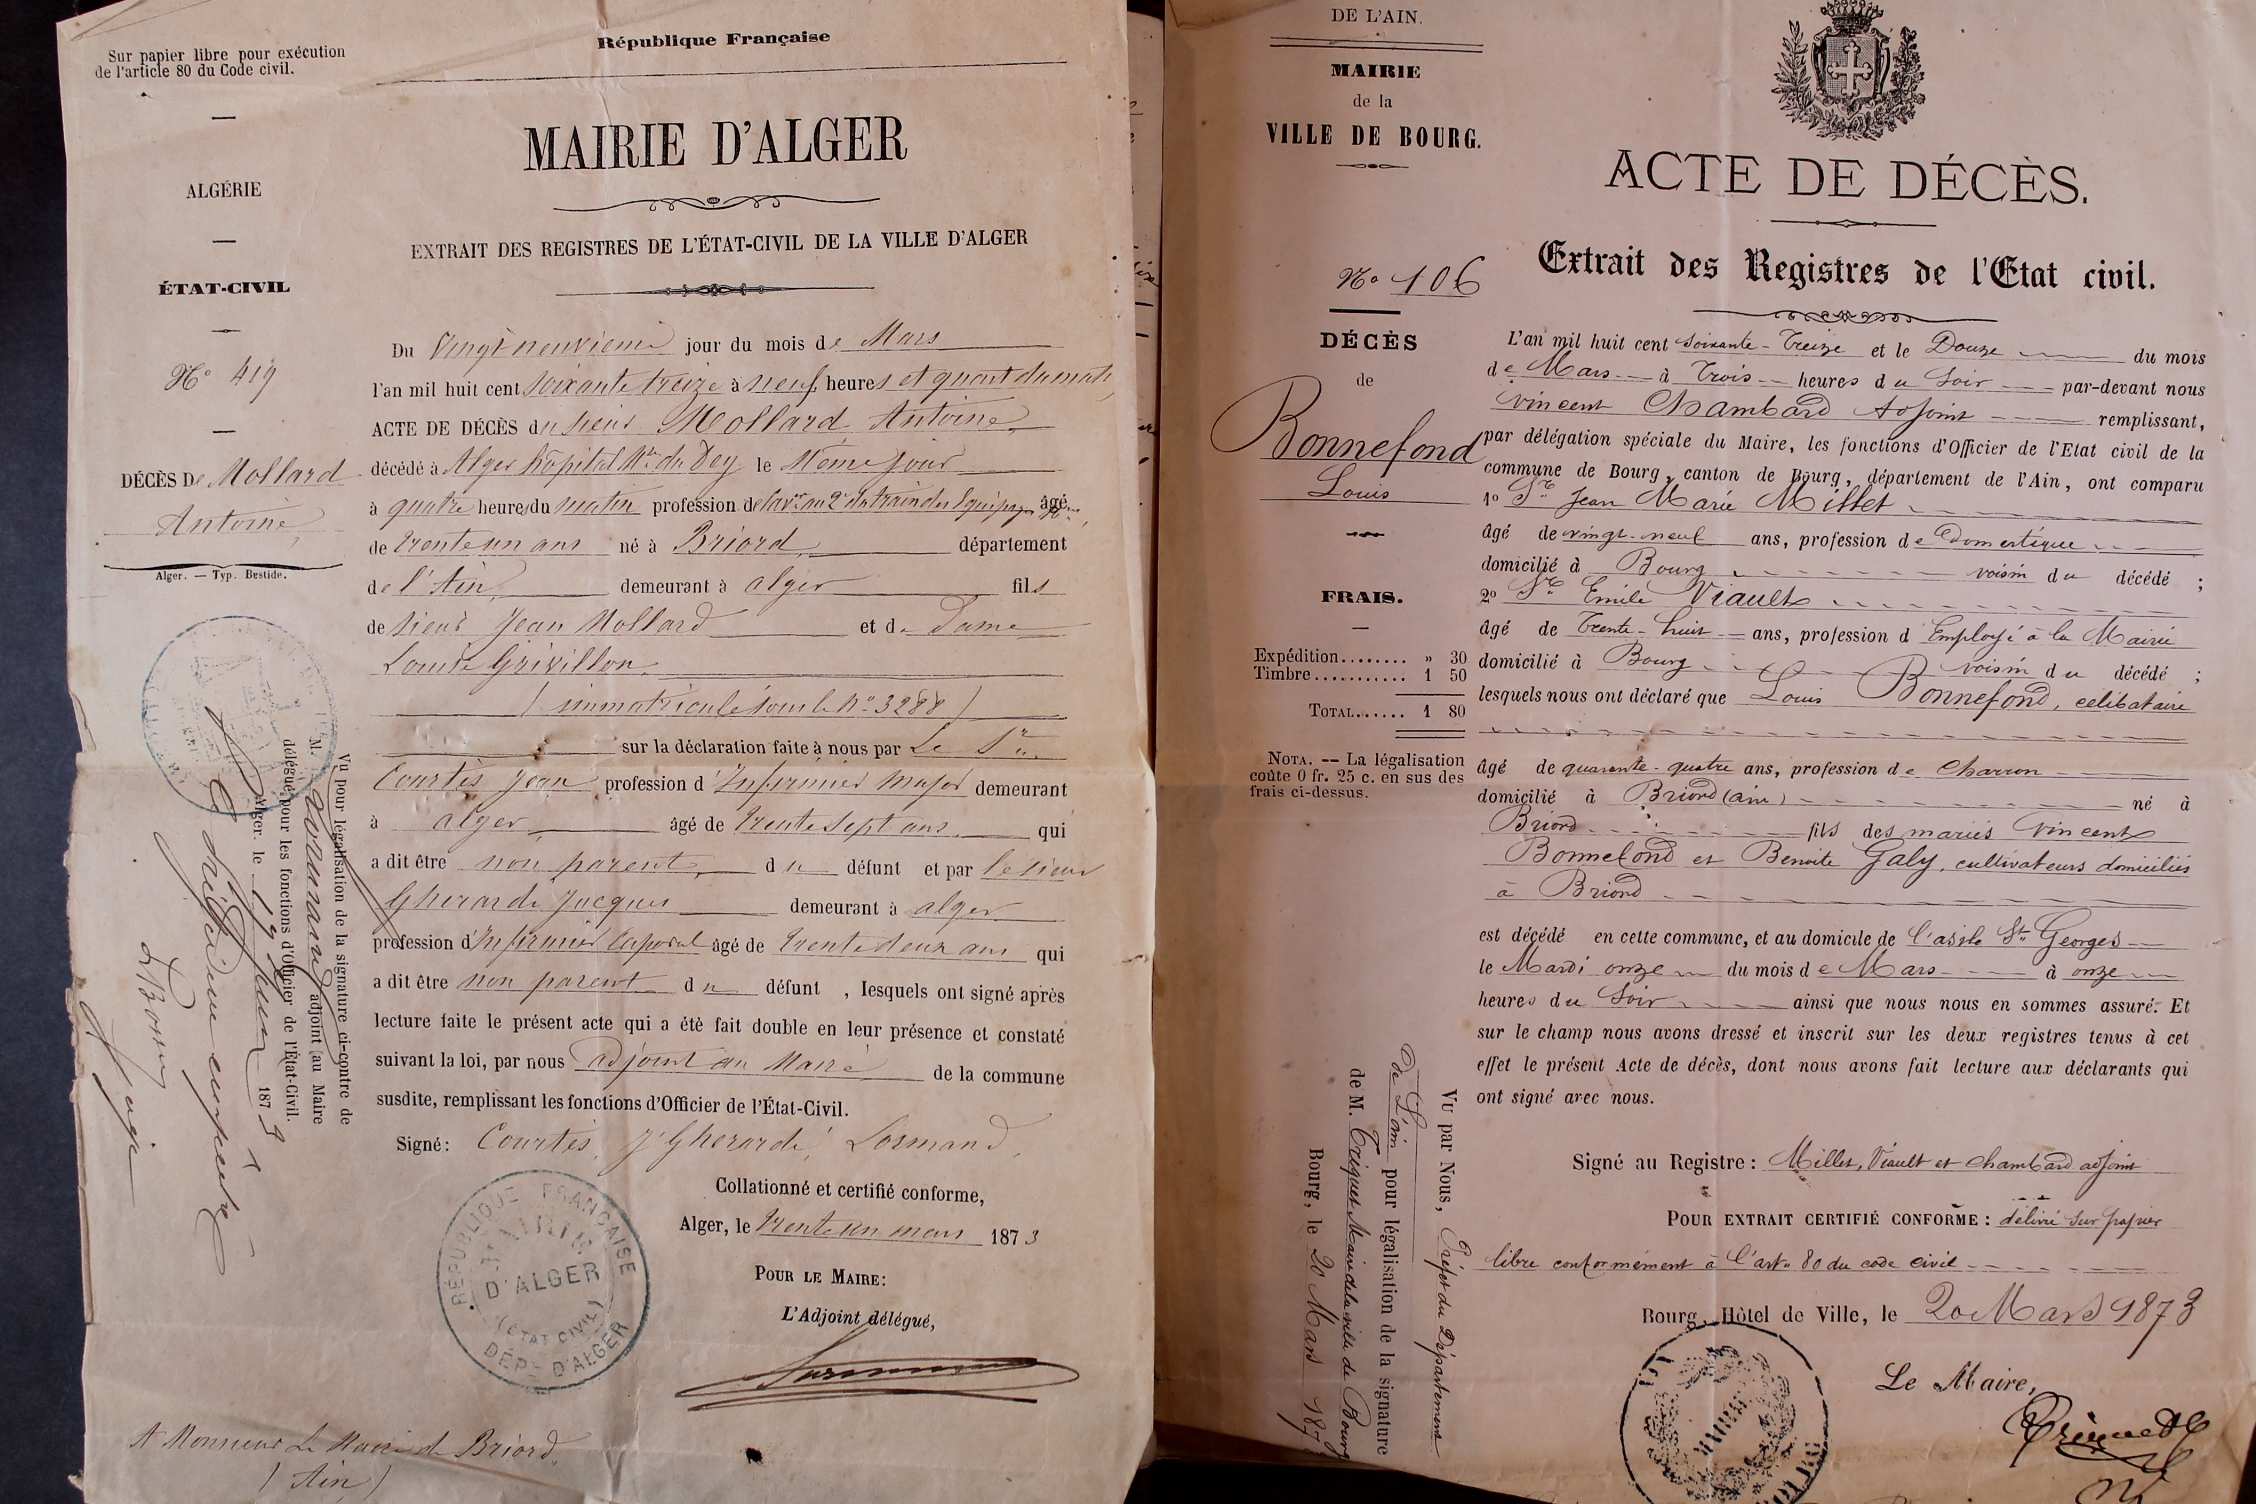 Sur papier libre pour exécution
de l'article 80 du Code civil.
ALGÉRIE
ÉTAT-CIVIL
No 419
DÉCÈS De Mollard
Antoine,
Alger. — Typ. Bestide.
République Française
MAIRIE D'ALGER
EXTRAIT DES REGISTRES DE L'ÉTAT-CIVIL DE LA VILLE D'ALGER
Du Vingt neuvième jour du mois de Mars
l'an mil huit cent soixante treize à neuf heures et quart du matin,
ACTE DE DÉCÈS du sieur Mollard Antoine,
décédé à Alger hôpital Mre du Dey le Même jour
à quatre heure du matin profession de cavr au 2e du train des équipages âgé
de trente un ans né à Briord, département
de l'Ain, demeurant à alger fils
de sieur Jean Mollard et de Dame
Louise Grivillon.
(immatriculé sous le No 3288)
sur la déclaration faite à nous par Le Sr
Courtès Jean profession d'Infirmier major demeurant
à alger âgé de trente sept ans qui
a dit être non parent, du défunt et par le sieur
Gherardi Jacques demeurant à alger
profession d'Infirmier caporal âgé de trente deux ans qui
a dit être non parent du défunt , lesquels ont signé après
lecture faite le présent acte qui a été fait double en leur présence et constaté
suivant la loi, par nous adjoint au Maire de la commune
susdite, remplissant les fonctions d'Officier de l'État-Civil.
Signé: Courtès, J Gherardi, Lormand,
Collationné et certifié conforme,
Alger, le trente un mars 1873
POUR LE MAIRE:
L'Adjoint délégué,
RÉPUBLIQUE FRANÇAISE
MAIRIE
D'ALGER
(ÉTAT CIVIL)
DÉPT D'ALGER
Vu pour légalisation de la signature ci-contre de
M. Lormand adjoint au Maire
délégué pour les fonctions d'Officier de l'État-Civil.
Alger, le 1873
juge
A Monsieur Le Maire de Briord.
(Ain)
DE L'AIN.
MAIRIE
de la
VILLE DE BOURG.
No 106
DÉCÈS
de
Bonnefond
Louis
FRAIS.
Expédition........ » 30
Timbre........... 1 50
TOTAL...... 1 80
NOTA. -- La légalisation
coûte 0 fr. 25 c. en sus des
frais ci-dessus.
ACTE DE DÉCÈS.
Extrait des Registres de l'Etat civil.
L'an mil huit cent soixante-treize et le Douze du mois
de Mars à trois heures du soir par-devant nous
Vincent Chambard Adjoint remplissant,
par délégation spéciale du Maire, les fonctions d'Officier de l'Etat civil de la
commune de Bourg, canton de Bourg, département de l'Ain, ont comparu
1o Sr Jean Marie Millet
âgé de vingt-neuf ans, profession de Domestique
domicilié à Bourg voisin du décédé ;
2o Sr Emile Viault
âgé de trente-huit ans, profession d'Employé à la Mairie
domicilié à Bourg voisin du décédé ;
lesquels nous ont déclaré que Louis Bonnefond, célibataire
âgé de quarante-quatre ans, profession de Charron
domicilié à Briord (ain) né à
Briord fils des mariés Vincent
Bonnefond et Benoite Galy, cultivateurs domiciliés
à Briord
est décédé en cette commune, et au domicile de l'asile St Georges
le Mardi onze du mois de Mars à onze
heures du soir ainsi que nous nous en sommes assuré. Et
sur le champ nous avons dressé et inscrit sur les deux registres tenus à cet
effet le présent Acte de décès, dont nous avons fait lecture aux déclarants qui
ont signé avec nous.
Signé au Registre : Millet, Viault et Chambard adjoint
POUR EXTRAIT CERTIFIÉ CONFORME : délivré sur papier
libre conformément à l'art. 80 du code civil
Bourg, Hôtel de Ville, le 20 Mars 1873
Le Maire,
MAIRIE
VU par Nous, Préfet du Département
de l'ain pour légalisation de la signature
de M. Maire de la ville de Bourg
Bourg, le 20 Mars 187